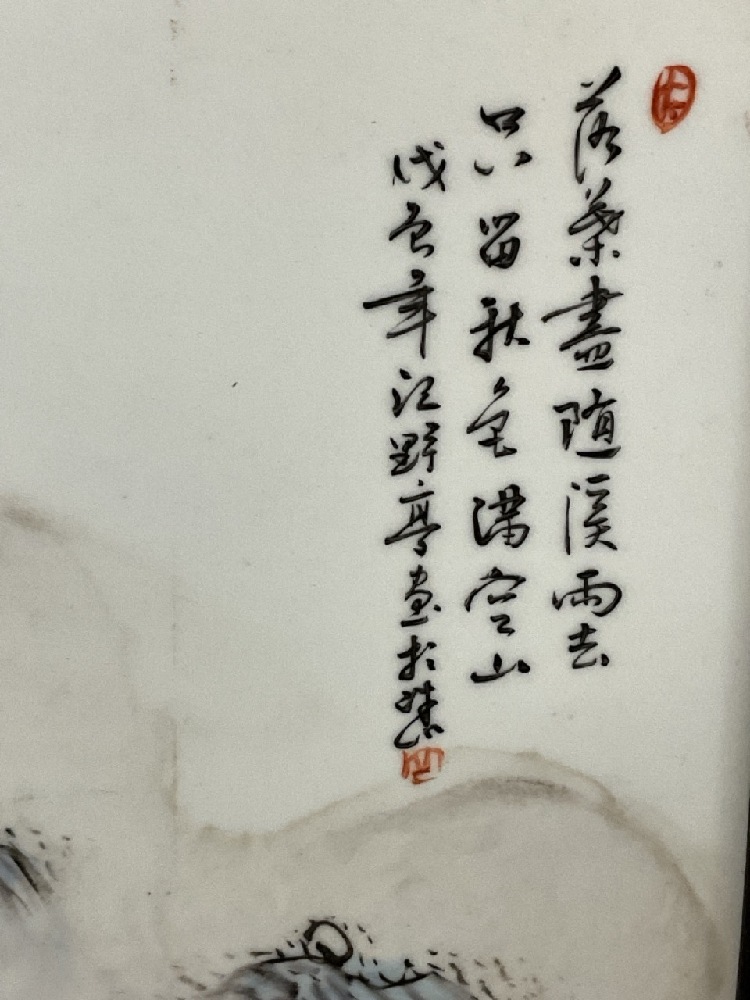 落葉盡随溪雨去
只留秋色滿空山
戊寅年汪野亭畫於珠山